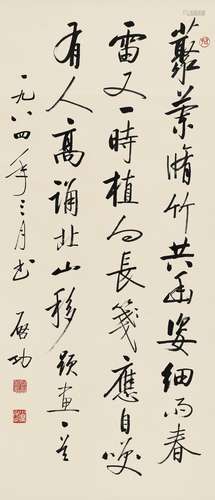 丛兰脩竹共幽姿细雨春
雷又一時植向長箋應自咲
有人高诵北山移 题画一首
一九八四年三月书 启功